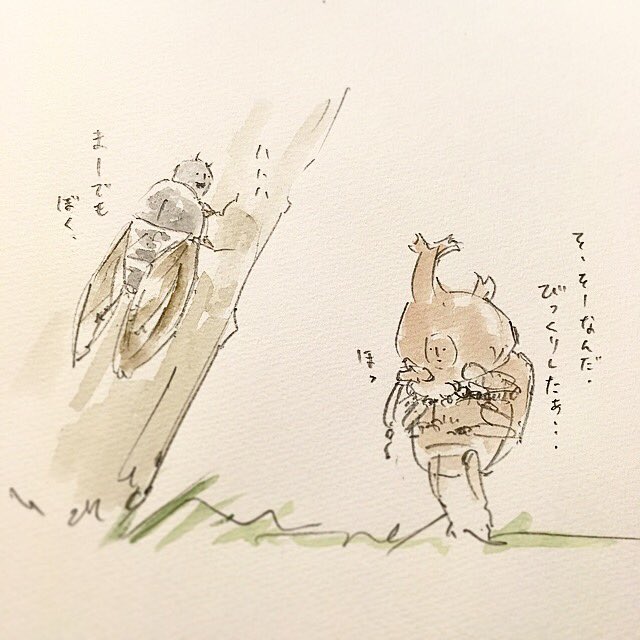 まーでも
ぼく、
ハハハ
そ、そーなんだ。
びっくりしたぁ...
ほっ